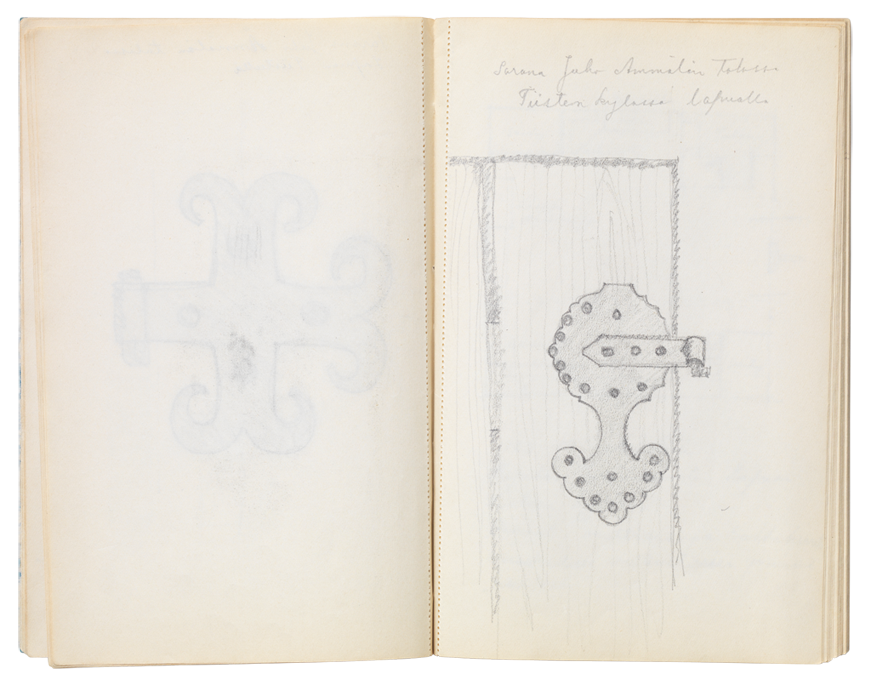 Sarana Juho Ammälän Talossa
Tiisten kylässä lapualla